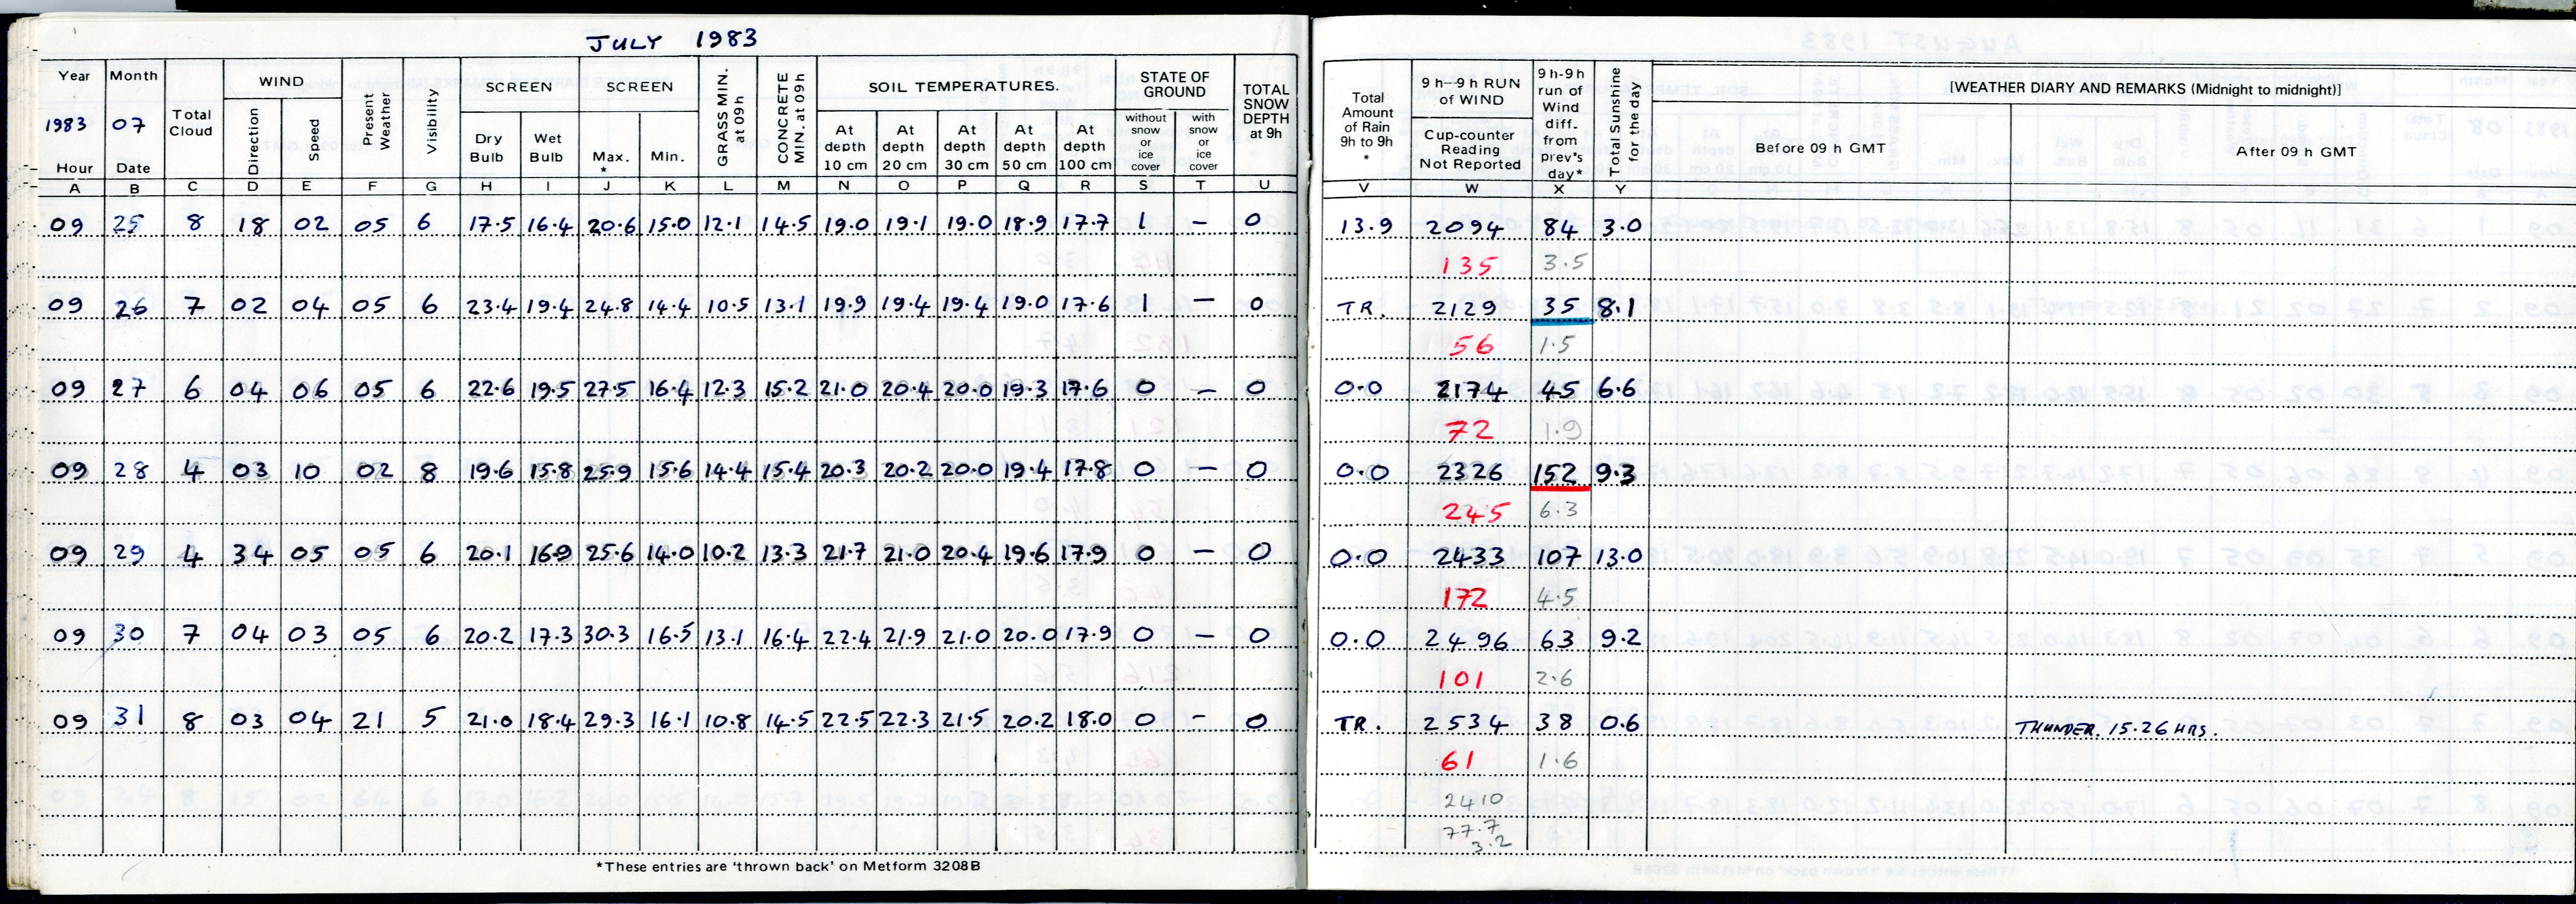 JULY 1983
Year Month Total Cloud WIND Present Weather Visibility SCREEN SCREEN GRASS MIN. at 09h CONCRETE MIN. at 09h SOIL TEMPERATURES. STATE OF GROUND TOTAL SNOW DEPTH at 9h Total Amount of Rain 9h to 9h * 9h–9h RUN of WIND 9h-9h run of Wind diff. from prev's day* Total Sunshine for the day [WEATHER DIARY AND REMARKS (Midnight to midnight)]
1983 07 Direction Speed Dry Bulb Wet Bulb Max. * Min. At depth 10 cm At depth 20 cm At depth 30 cm At depth 50 cm At depth 100 cm without snow or ice cover with snow or ice cover Cup-counter Reading Not Reported Before 09 h GMT After 09 h GMT
Hour Date
A B C D E F G H I J K L M N O P Q R S T U V W X Y
09 25 8 18 02 05 6 17.5 16.4 20.6 15.0 12.1 14.5 19.0 19.1 19.0 18.9 17.7 1 – 0 13.9 2094 84 3.0
135 3.5
09 26 7 02 04 05 6 23.4 19.4 24.8 14.4 10.5 13.1 19.9 19.4 19.4 19.0 17.6 1 – 0 TR. 2129 35 8.1
56 1.5
09 27 6 04 06 05 6 22.6 19.5 27.5 16.4 12.3 15.2 21.0 20.4 20.0 19.3 17.6 0 – 0 0.0 2174 45 6.6
72 1.9
09 28 4 03 10 02 8 19.6 15.8 25.9 15.6 14.4 15.4 20.3 20.2 20.0 19.4 17.8 0 – 0 0.0 2326 152 9.3
245 6.3
09 29 4 34 05 05 6 20.1 16.9 25.6 14.0 10.2 13.3 21.7 21.0 20.4 19.6 17.9 0 – 0 0.0 2433 107 13.0
172 4.5
09 30 7 04 03 05 6 20.2 17.3 30.3 16.5 13.1 16.4 22.4 21.9 21.0 20.0 17.9 0 – 0 0.0 2496 63 9.2
101 2.6
09 31 8 03 04 21 5 21.0 18.4 29.3 16.1 10.8 14.5 22.5 22.3 21.5 20.2 18.0 0 – 0 TR. 2534 38 0.6 THUNDER. 15.26 HRS.
61 1.6
2410
77.7
3.2
*These entries are 'thrown back' on Metform 3208B